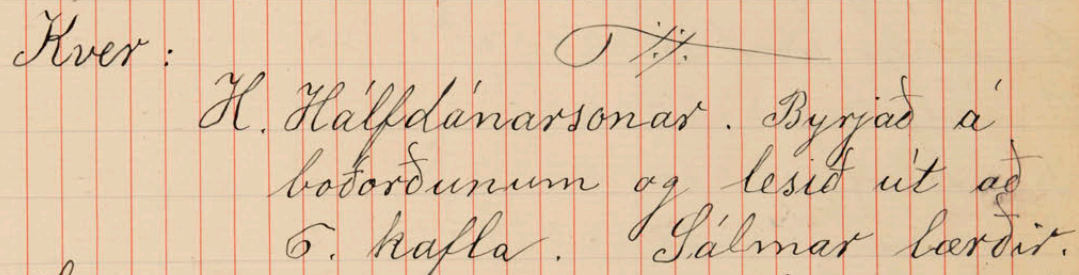 Kver:
H. Hálfdánarsonar. Byrjað á
boðorðunum og lesið út að
6. kafla. Sálmar lærðir.